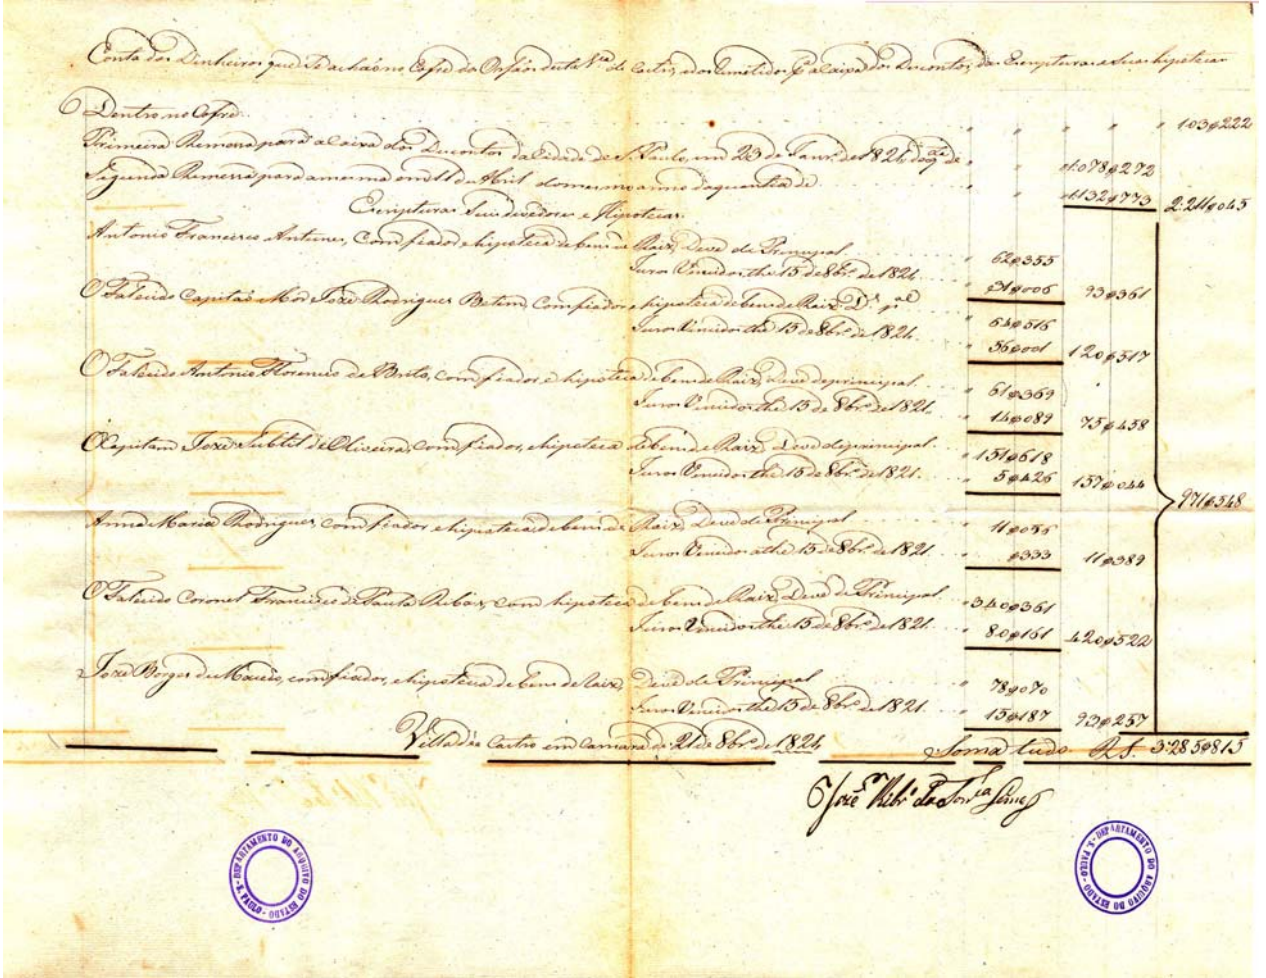 Conta dos Dinheiros que Se acháo no Cofre dos Orfãos desta V.ª de Castro, e dos Remetidos p.ª a Caixa dos Descontos, das Escripturas e Suas hipotecas
Dentro no Cofre " " " " " 103$222
Primeira Remessa para a Caixa dos Descontos da Cidade de S. Paulo, em 23 de Janr.º de 1821, da q.tia de " " 1:078$272
Segunda Remessa para a mesma em 11 de Abril do mesmo anno da quantia de " " 1:132$773 2:211$045
Escripturas Seus devedores e Hipotecas
Antonio Francisco Antunes, Com fiador e hipoteca de bens de Raiz, Deve de Principal " 62$355
Juros Vencidos the 15 de 8br.º de 1821 " 31$006 93$361
O Falecido Capitaõ Mor Jozé Rodrigues Betim, Com fiador e hipoteca de bens de Raiz D.e p.al
" 64$516
Juros Vencidos the 15 de 8br.º de 1821 " 56$001 120$517
O Falecido Antonio Florencio de Brito, com fiador, e hipoteca de bens de Raiz, Deve de principal " 61$369
Juros Vencidos the 15 de 8br.º de 1821 " 14$089 75$458
O Capitam Jozé Subtil de Oliveira, com fiador, e hipoteca de bens de Raiz, Deve de principal " 151$618
Juros Vencidos the 15 de 8br.º de 1821 " 5$426 157$044
971$548
Anna Maria Rodrigues, com fiador e hipoteca de bens de Raiz, Deve de Principal " 11$056
Juros Vencidos athe 15 de 8br.º de 1821 " $333 11$389
O Falecido Coronel Francisco de Paula Ribas, com hipoteca de bens de Raiz, Deve de Principal " 340$361
Juros Vencidos the 15 de 8br.º de 1821 " 80$161 420$522
Jozé Borges de Macedo, com fiador, e hipoteca de bens de Raiz, Deve de Principal " 78$070
Juros Vencidos the 15 de 8br.º de 1821 " 15$187 93$257
Villa de Castro em Camara de 21 de 8br.º de 1821 Soma tudo R.S. 3:285$815
Jozé Ribr.º da
DEPARTAMENTO DO ARQUIVO DO ESTADO - S. PAULO
DEPARTAMENTO DO ARQUIVO DO ESTADO - S. PAULO